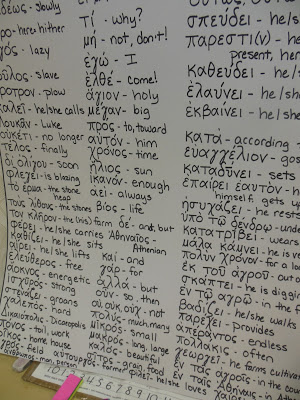 δέως - slowly
ρο - here hither
γός - lazy
ῦλος - slave
ροτρον - plow
καλεῖ - he/she calls
Λουκᾶν - Luke
οὐκέτι - no longer
τέλος - finally
δι' ὀλίγου - soon
φλέγει - is blazing
τὸ ἕρμα - the stone
heap
τοὺς λίθους - the stones
τὸν κλῆρον - the (his) farm
φέρει - he/she carries
καθίζει - he/she sits
αἴρει - he/she lifts
ἐλεύθερος - free
ἄοκνος - energetic
ἰσχυρός - strong
στενάζει - groans
χαλεπός - hard
Δικαιόπολις - Dicaeopolis
πόνος - toil, work
οἶκος - home house
ἀγρός - field
ἄνθρωπος - man, person
τί - why?
μή - not, don't!
ἐγώ - I
ἐλθέ - come!
ἅγιον - holy
μέγαν - big
πρὸς - to, toward
αὐτόν - him
χρόνος - time
ἥλιος - sun
ἱκανόν - enough
ἀεί - always
βίος - life
δέ - and, but
Ἀθηναῖος -
Athenian
καί - and
γάρ - for
ἀλλά - but
οὖν - so, then
οὐ, οὐκ, οὐχ - not
πολύς - much, many
μικρός - small
μακρός - long, large
καλός - beautiful
αὐτουργός - farmer
σῖτος - grain, food
σπεύδει - he/she
πάρεστι(ν) - he/she
present, her
καθεύδει - he/she
ἐλαύνει - he/she
ἐκβαίνει - he/she
κατά - according
εὐαγγέλιον - gos
καταδύνει - sets
ἐπαίρει ἑαυτόν - h
himself, gets up
ἡσυχάζει - he rests
ὑπὸ τῷ δένδρῳ - under
κατατρίβει - wears
μάλα κάμνει - he is ve
πολὺν χρόνον - for a lo
ἐκ τοῦ ἀγροῦ - out o
σκάπτει - he is diggi
ἐν τῷ ἀγρῷ - in the f
βαδίζει - he/she walks
παρέχει - provides
ἀπέραντος - endless
πολλάκις - often
γεωργεῖ - he farms cultivat
ἐν τοῖς ἀγροῖς - in the co
ἐν ταῖς Ἀθήναις - in Ath
4 5 6 7 8 9 10